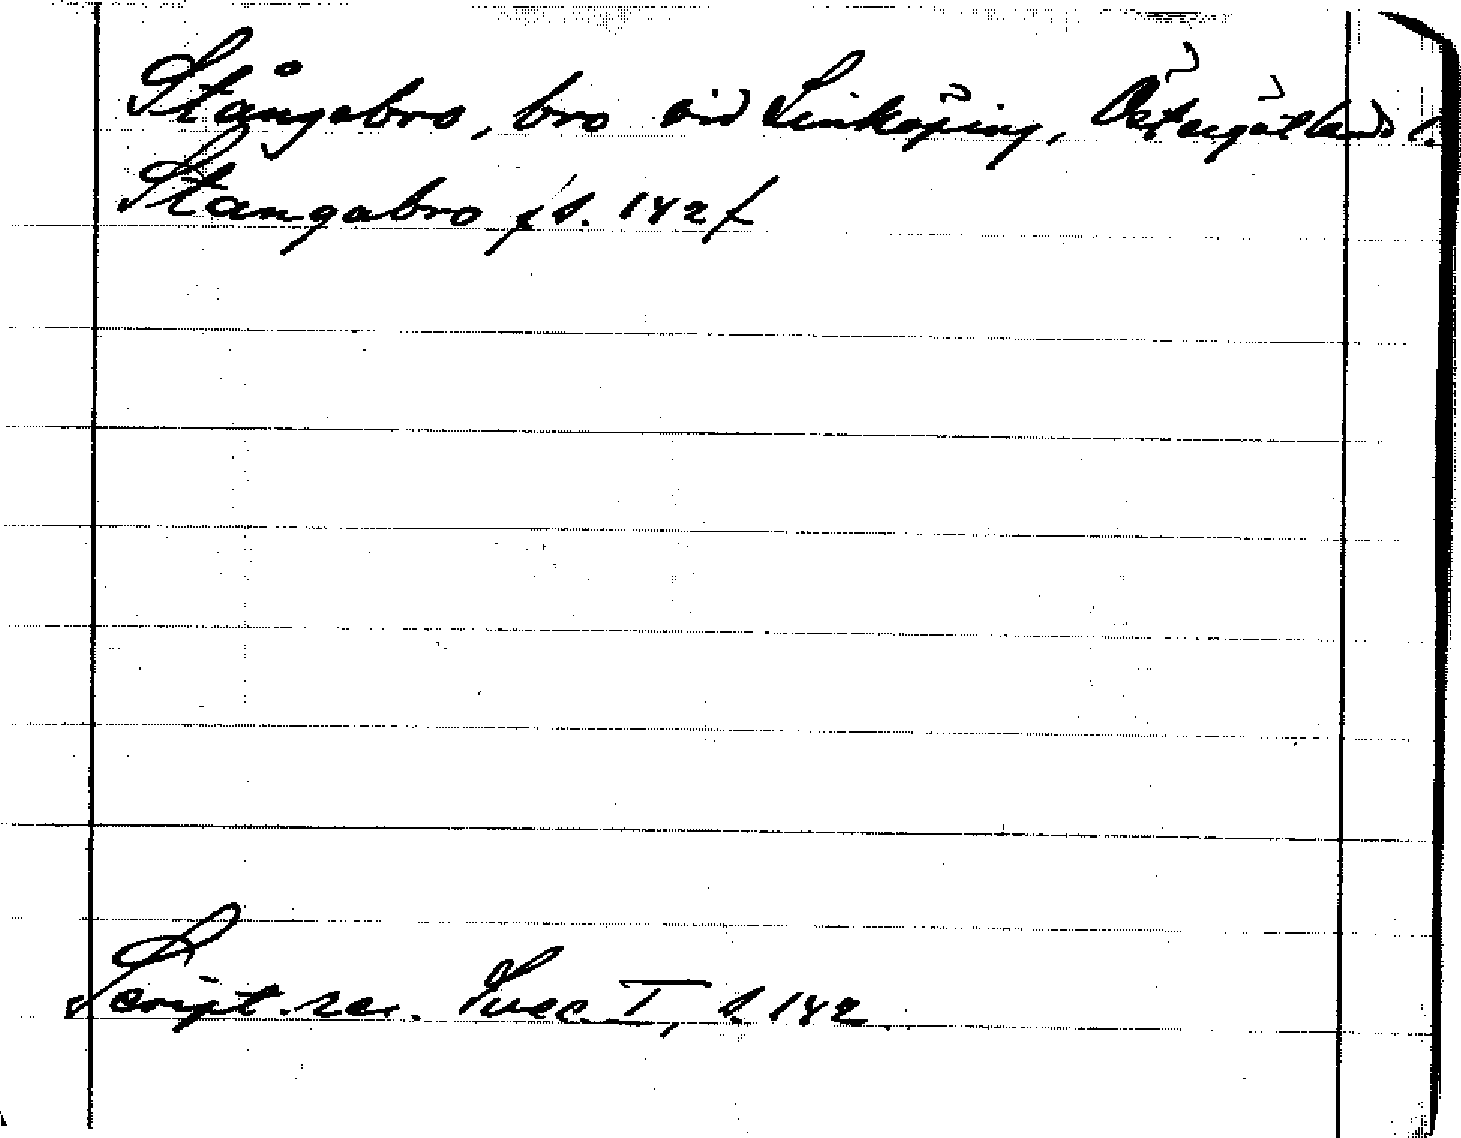 Stångebro, bro vid Linköping, Östergötlands l.
Stangabro /s. 142/
Script. rer. Svec. I, s. 142